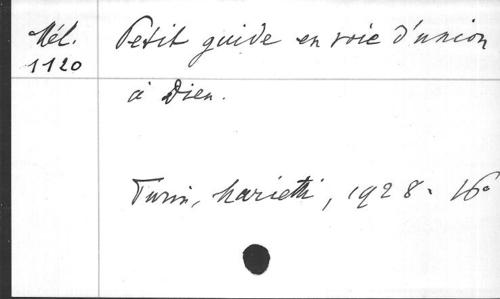 Mél.
1120
Petit guide en voie d'union
à Dieu.
Turin, Marietti, 1928. 16°